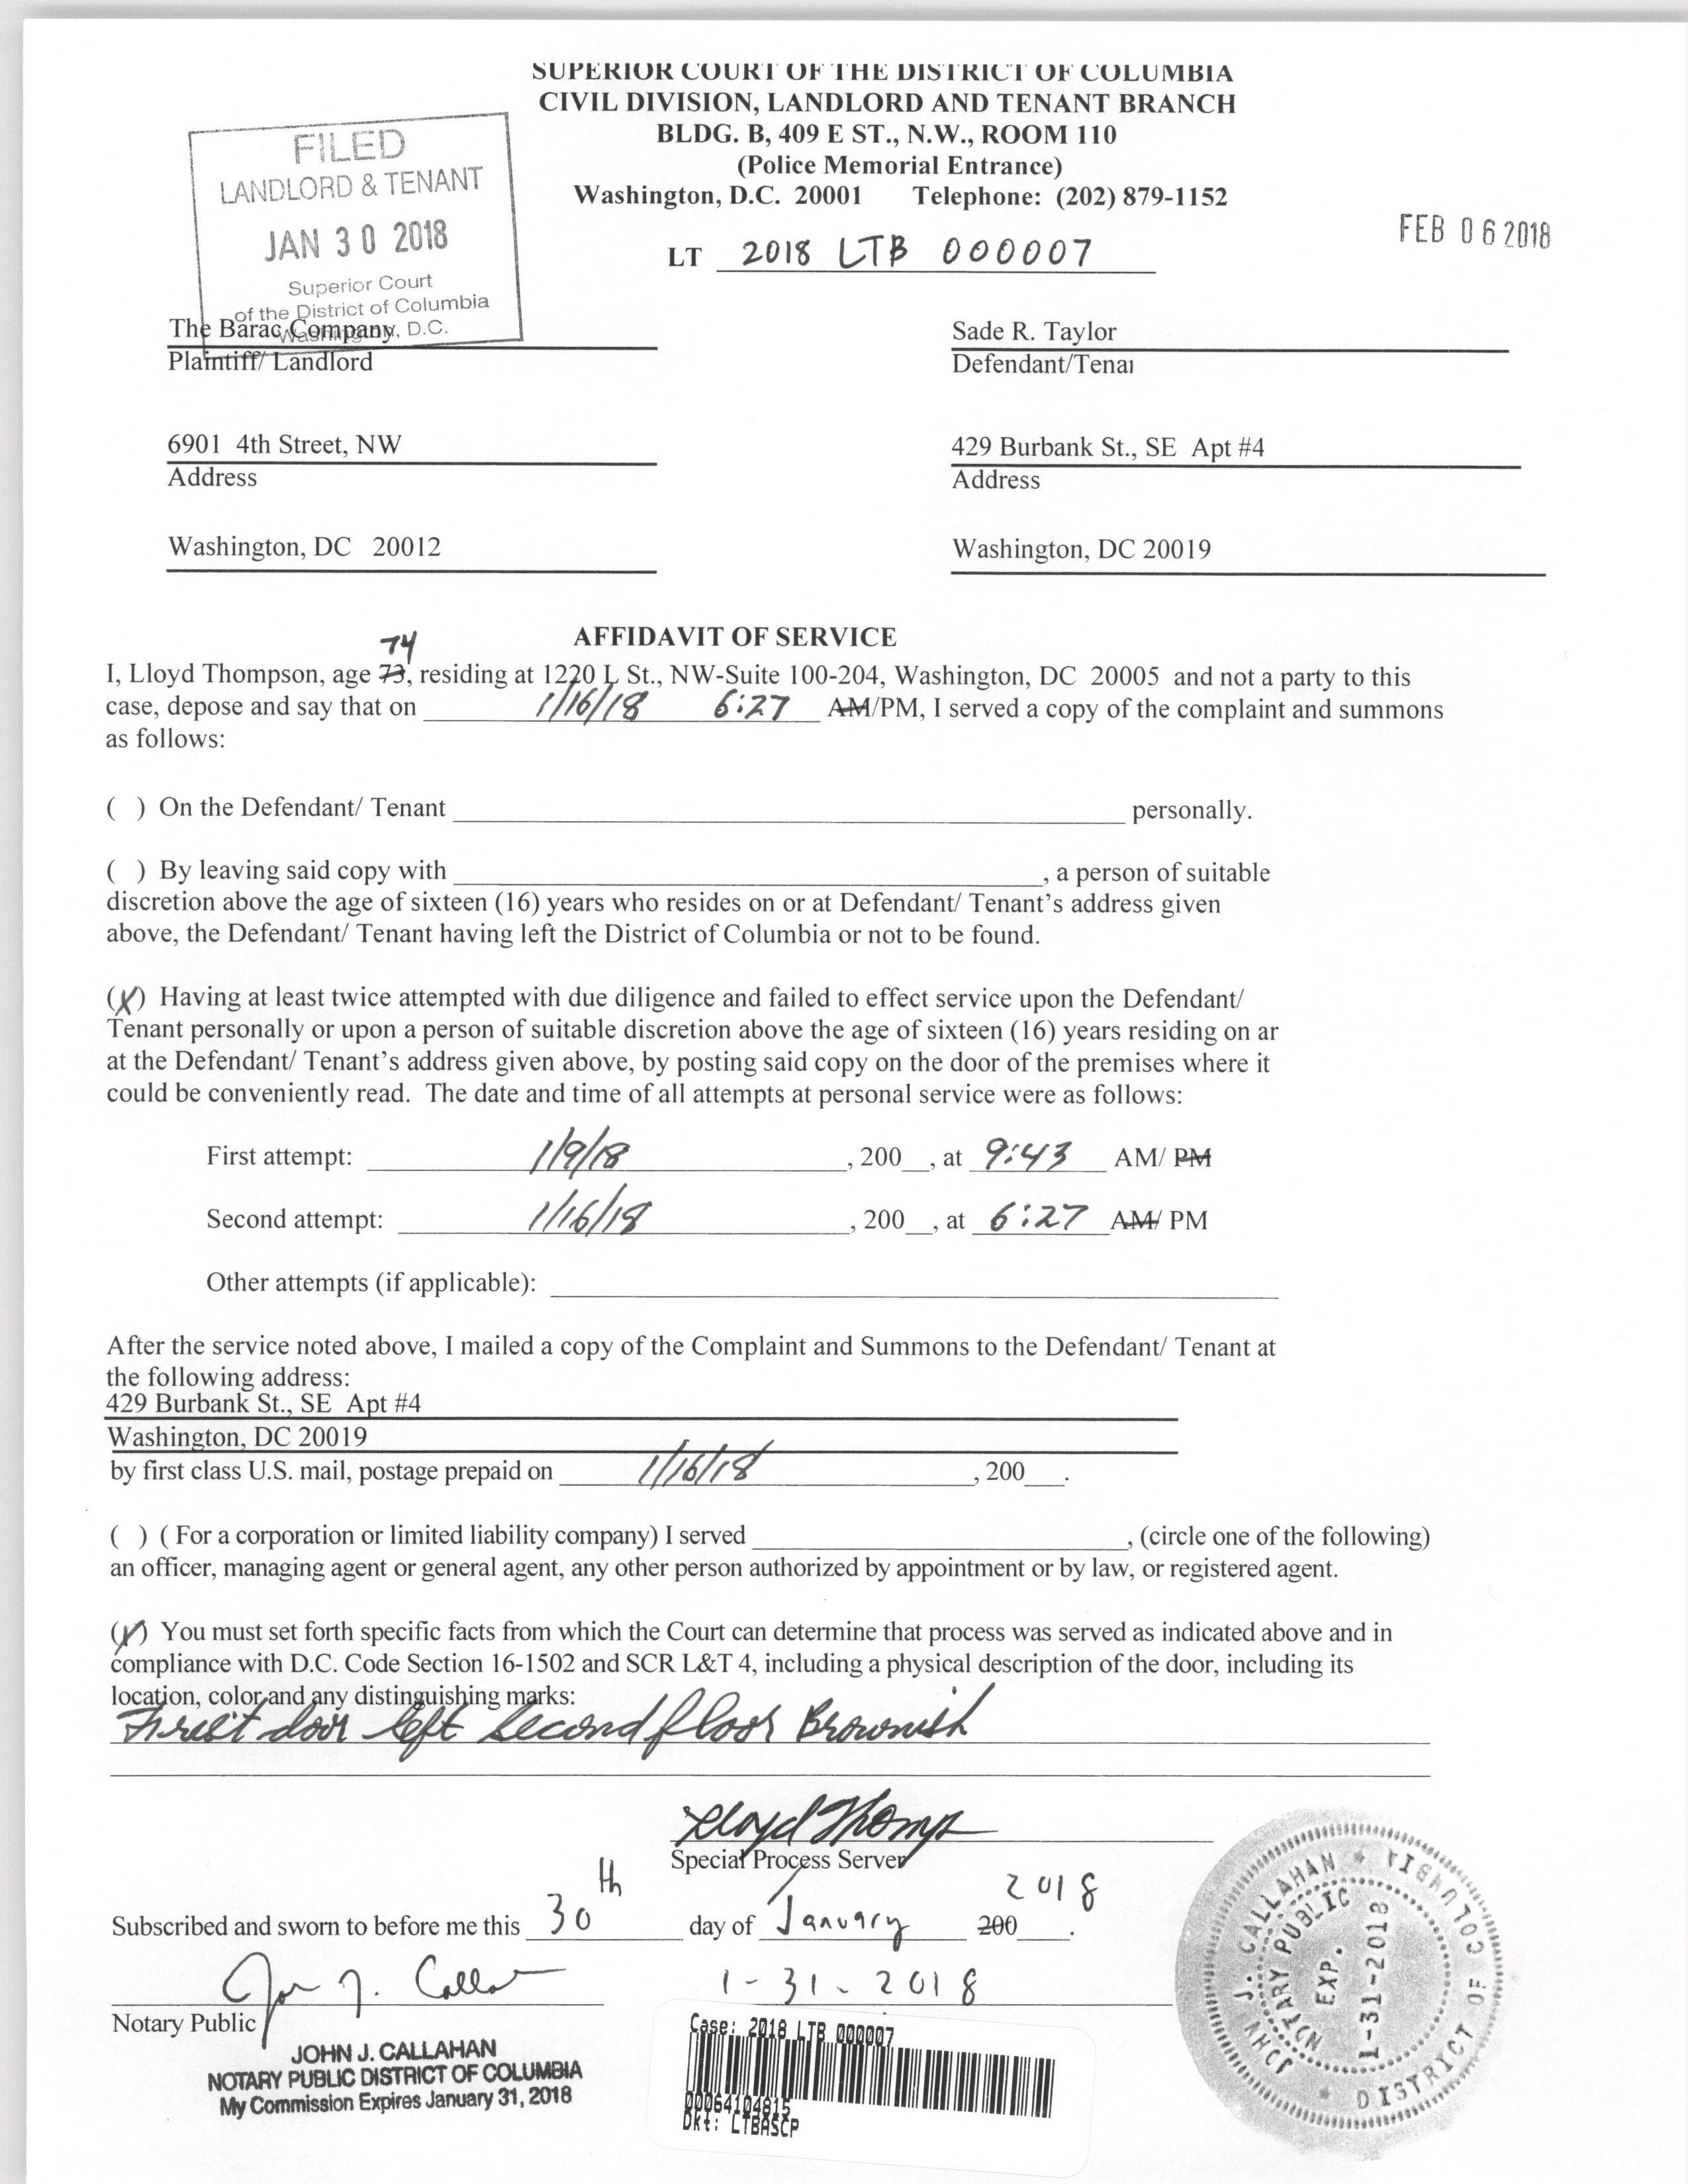 SUPERIOR COURT OF THE DISTRICT OF COLUMBIA
CIVIL DIVISION, LANDLORD AND TENANT BRANCH
BLDG. B, 409 E ST., N.W., ROOM 110
(Police Memorial Entrance)
Washington, D.C. 20001 Telephone: (202) 879-1152
FILED
LANDLORD & TENANT
JAN 30 2018
Superior Court
of the District of Columbia
Washington, D.C.
FEB 06 2018
LT 2018 LTB 000007
The Barac Company, Sade R. Taylor
Plaintiff/ Landlord Defendant/Tenai
6901 4th Street, NW 429 Burbank St., SE Apt #4
Address Address
Washington, DC 20012 Washington, DC 20019
AFFIDAVIT OF SERVICE
74
I, Lloyd Thompson, age 73, residing at 1220 L St., NW-Suite 100-204, Washington, DC 20005 and not a party to this
case, depose and say that on 1/16/18 6:27 AM/PM, I served a copy of the complaint and summons
as follows:
( ) On the Defendant/ Tenant personally.
( ) By leaving said copy with , a person of suitable
discretion above the age of sixteen (16) years who resides on or at Defendant/ Tenant's address given
above, the Defendant/ Tenant having left the District of Columbia or not to be found.
(X) Having at least twice attempted with due diligence and failed to effect service upon the Defendant/
Tenant personally or upon a person of suitable discretion above the age of sixteen (16) years residing on ar
at the Defendant/ Tenant's address given above, by posting said copy on the door of the premises where it
could be conveniently read. The date and time of all attempts at personal service were as follows:
First attempt: 1/9/18 , 200__, at 9:43 AM/ PM
Second attempt: 1/16/18 , 200__, at 6:27 AM/ PM
Other attempts (if applicable):
After the service noted above, I mailed a copy of the Complaint and Summons to the Defendant/ Tenant at
the following address:
429 Burbank St., SE Apt #4
Washington, DC 20019
by first class U.S. mail, postage prepaid on 1/16/18 , 200___.
( ) ( For a corporation or limited liability company) I served , (circle one of the following)
an officer, managing agent or general agent, any other person authorized by appointment or by law, or registered agent.
(X) You must set forth specific facts from which the Court can determine that process was served as indicated above and in
compliance with D.C. Code Section 16-1502 and SCR L&T 4, including a physical description of the door, including its
location, color and any distinguishing marks:
First door left second floor Brownish
Lloyd Thomps
Special Process Server
Subscribed and sworn to before me this 30th day of January 200 2018.
John J. Callahan 1-31-2018
Notary Public
JOHN J. CALLAHAN
NOTARY PUBLIC DISTRICT OF COLUMBIA
My Commission Expires January 31, 2018
Case: 2018 LTB 000007
00064104815
Dkt: LTBASCP
JOHN J. CALLAHAN
DISTRICT OF COLUMBIA
NOTARY PUBLIC
EXP.
1-31-2018